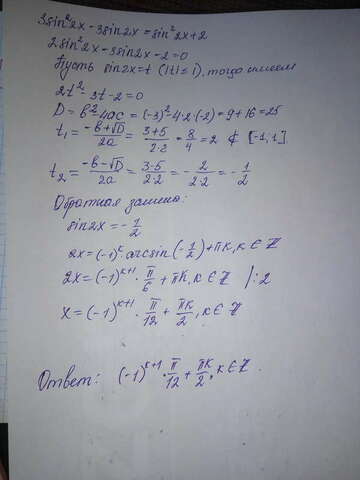 3sin²2x - 3sin2x = sin²2x + 2
2sin²2x - 3sin2x - 2 = 0
Пусть sin2x = t (|t| ≤ 1), тогда имеем
2t² - 3t - 2 = 0
D = b² - 4ac = (-3)² - 4·2·(-2) = 9 + 16 = 25
t₁ = (-b+√D)/2a = (3+5)/(2·2) = 8/4 = 2 ∉ [-1; 1]
t₂ = (-b-√D)/2a = (3-5)/(2·2) = -2/(2·2) = -1/2
Обратная замена:
sin2x = -1/2
2x = (-1)ᵏ · arcsin(-1/2) + πk, k ∈ Z
2x = (-1)ᵏ⁺¹ · π/6 + πk, k ∈ Z /:2
x = (-1)ᵏ⁺¹ · π/12 + πk/2, k ∈ Z
Ответ: (-1)ᵏ⁺¹ · π/12 + πk/2, k ∈ Z.